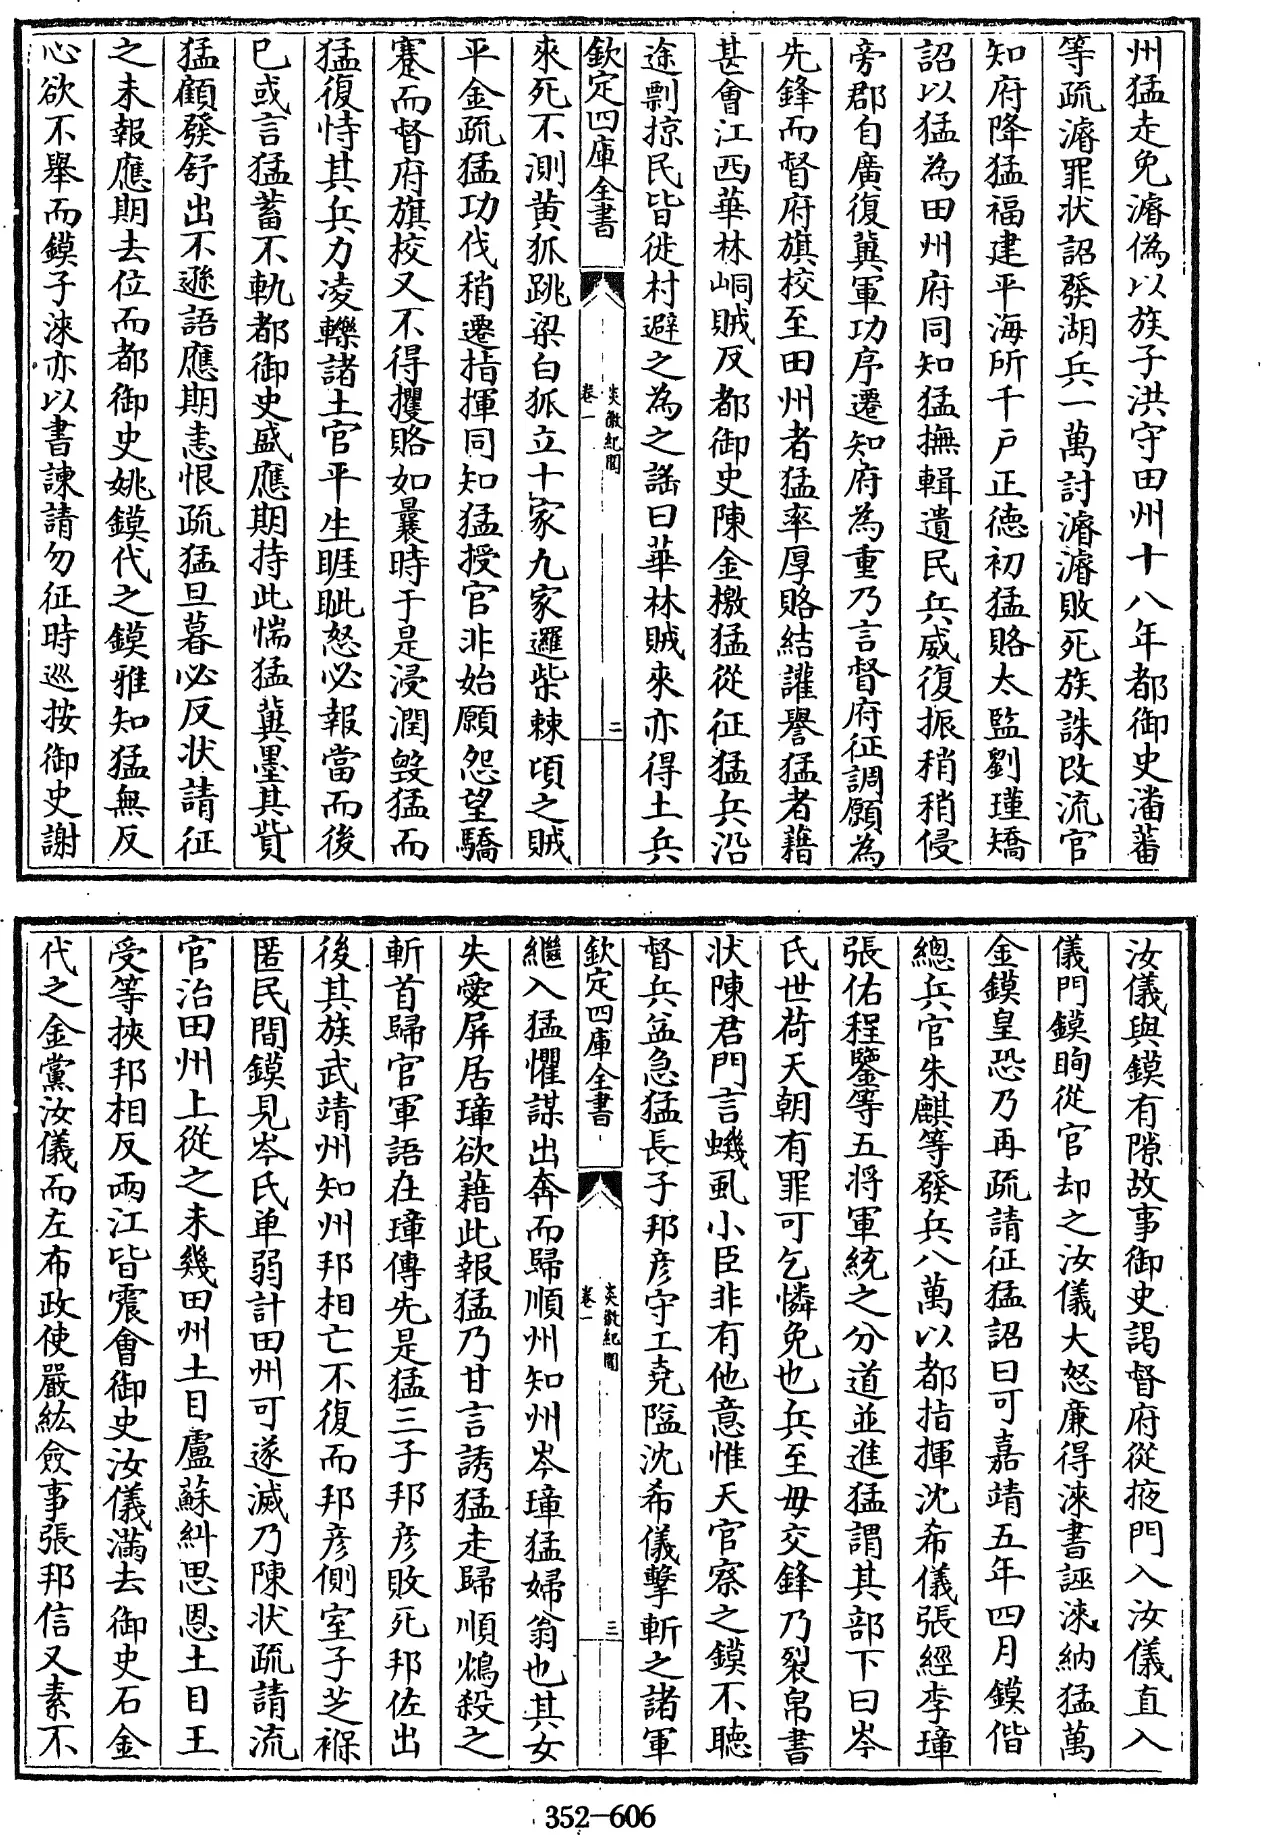 州猛走免濬偽以族子洪守田州十八年都御史潘蕃
等疏濬罪状詔發湖兵一萬討濬濬敗死族誅改流官
知府降猛福建平海所千戸正徳初猛賂太監劉瑾矯
詔以猛為田州府同知猛撫輯遺民兵威復振稍稍侵
旁郡自廣復冀軍功序遷知府為重乃言督府征調願為
先鋒而督府旗校至田州者猛率厚賂結讙譽猛者藉
甚會江西華林峒賊反都御史陳金檄猛從征猛兵沿
途剽掠民皆徙村避之為之謡曰華林賊來亦得土兵
欽定四庫全書
炎徼紀聞
卷一
二
來死不測黄狐跳梁白狐立十家九家邏柴棘頃之賊
平金疏猛功伐稍遷指揮同知猛授官非始願怨望驕
蹇而督府旗校又不得攫賂如曩時于是浸潤毀猛而
猛復恃其兵力凌轢諸土官平生睚眦怒必報當而後
已或言猛蓄不軌都御史盛應期持此惴猛冀墨其貲
猛顧發舒出不遜語應期恚恨疏猛旦暮必反状請征
之未報應期去位而都御史姚鏌代之鏌雅知猛無反
心欲不舉而鏌子淶亦以書諫請勿征時巡按御史謝
汝儀與鏌有隙故事御史謁督府從掖門入汝儀直入
儀門鏌眴從官却之汝儀大怒廉得淶書誣淶納猛萬
金鏌皇恐乃再疏請征猛詔曰可嘉靖五年四月鏌偕
總兵官朱麒等發兵八萬以都指揮沈希儀張經李璋
張佑程鑒等五將軍統之分道並進猛謂其部下曰岑
氏世荷天朝有罪可乞憐免也兵至毋交鋒乃裂帛書
状陳君門言蟣虱小臣非有他意惟天官察之鏌不聽
督兵益急猛長子邦彦守工尭隘沈希儀擊斬之諸軍
欽定四庫全書
炎徼紀聞
卷一
三
繼入猛懼謀出奔而歸順州知州岑璋猛婦翁也其女
失愛屏居璋欲藉此報猛乃甘言誘猛走歸順鴆殺之
斬首歸官軍語在璋傳先是猛三子邦彦敗死邦佐出
後其族武靖州知州邦相亡不復而邦彦側室子芝褓
匿民間鏌見岑氏单弱計田州可遂滅乃陳状疏請流
官治田州上從之未幾田州土目盧蘇糾思恩土目王
受等挾邦相反兩江皆震會御史汝儀滿去御史石金
代之金黨汝儀而左布政使嚴紘僉事張邦信又素不
352-606